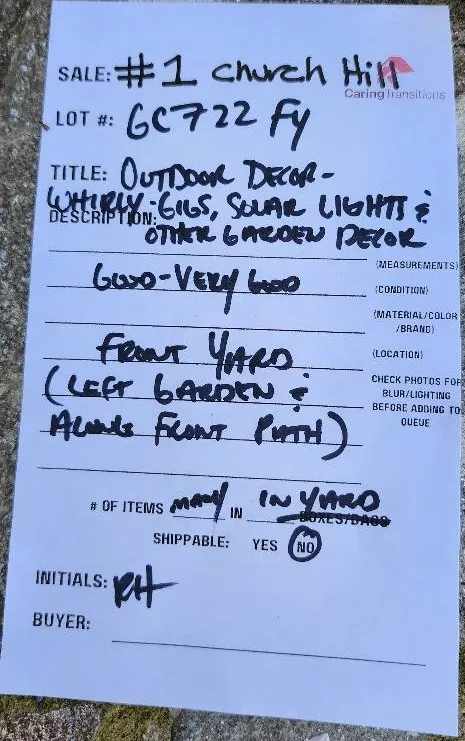 SALE: #1 Church Hill
CaringTransitions
LOT #: GC722 Fy
TITLE: OUTDOOR DECOR-
WHIRLY-GIGS, SOLAR LIGHTS &
DESCRIPTION:
OTHER GARDEN DECOR
(MEASUREMENTS)
GOOD-VERY GOOD
(CONDITION)
(MATERIAL/COLOR
/BRAND)
FRONT YARD
(LOCATION)
(LEFT GARDEN &
CHECK PHOTOS FOR
BLUR/LIGHTING
BEFORE ADDING TO
QUEUE
ALONG FRONT PATH)
# OF ITEMS MANY IN IN YARD
BOXES/BAGS
SHIPPABLE: YES NO
INITIALS: RH
BUYER: